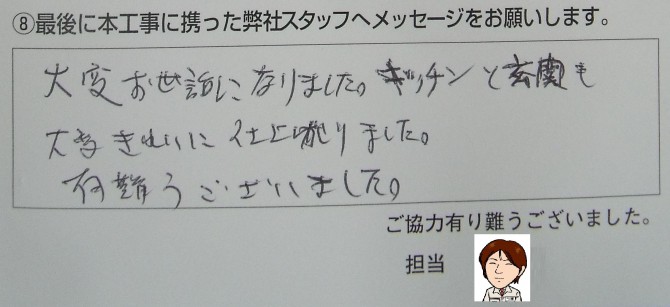 ⑧最後に本工事に携った弊社スタッフへメッセージをお願いします。
大変お世話になりました。キッチンと玄関も
大変きれいに仕上がりました。
有難うございました。
ご協力有り難うございました。
担当